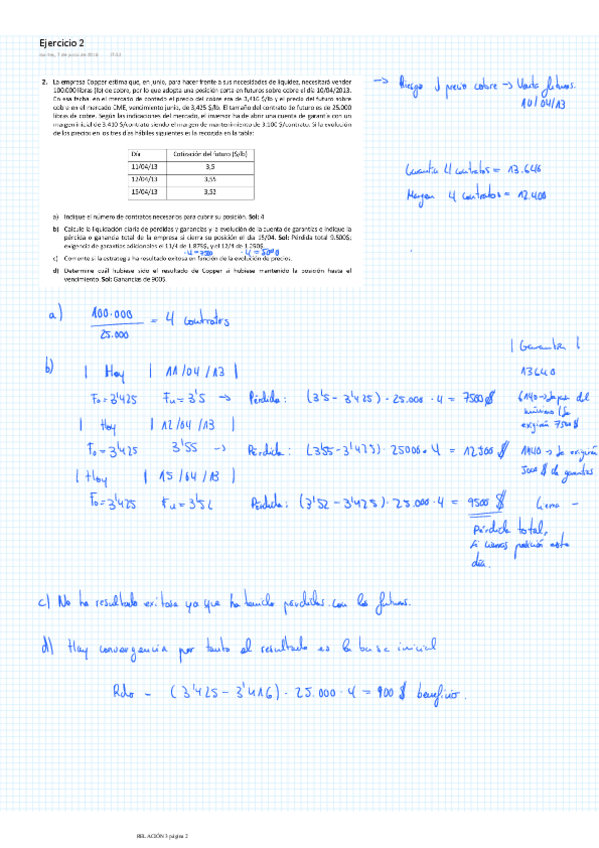 Ejercicio 2
2. La empresa Copper estima que, en junio, para hacer frente a sus necesidades de liquidez, necesitará vender
100.000 libras (lb) de cobre, por lo que adopta una posición corta en futuros sobre cobre el día 10/04/2013.
En esa fecha en el mercado de contado el precio del cobre era de 3,416 $/lb y el precio del futuro sobre
cobre en el mercado CME, vencimiento junio, de 3,425 $/lb. El tamaño del contrato de futuro es de 25.000
libras de cobre. Según las indicaciones del mercado, el inversor ha de abrir una cuenta de garantía con un
margen inicial de 3.410 $/contrato siendo el margen de mantenimiento de 3.100 $/contrato. Si la evolución
de los precios en los tres días hábiles siguientes es la recogida en la tabla:
Día Cotización del futuro ($/lb)
11/04/13 3,5
12/04/13 3,55
15/04/13 3,52
a) Indique el número de contratos necesarios para cubrir su posición. Sol: 4
b) Calcule la liquidación diaria de pérdidas y ganancias y la evolución de la cuenta de garantías e indique la
pérdida o ganancia total de la empresa si cierra su posición el día 15/04. Sol: Pérdida total 9.500$;
exigencia de garantías adicionales el 11/4 de 1.875$, y el 12/4 de 1.250$.
c) Comente si la estrategia ha resultado exitosa en función de la evolución de precios.
d) Determine cuál hubiese sido el resultado de Copper si hubiese mantenido la posición hasta el
vencimiento. Sol: Ganancias de 900$.
→ Riesgo ↓ precio cobre → Venta futuros.
10/04/13
Garantía 4 contratos = 13.640
Margen 4 contratos = 12.400
a) 100.000
25.000
= 4 contratos
| Garantía |
b) | Hoy | 11/04/13 |
13640
F₀ = 3'425 Fu = 3'5 → Pérdida: (3'5 - 3'425) · 25.000 · 4 = 7500 $
6140 → Se
exigirá 7500 $
| Hoy | 12/04/13 |
F₀ = 3'425 3'55 → Pérdida: (3'55 - 3'425) · 25000 · 4 = 12500 $
1140 → Se exigirán
5000 $ de garantías
| Hoy | 15/04/13 |
F₀ = 3'425 Fu = 3'52 Pérdida: (3'52 - 3'425) · 25.000 · 4 = 9500 $
Pérdida total,
si cierras posición este
día.
c) No ha resultado exitosa ya que ha tenido pérdidas con los futuros.
d) Hay convergencia por tanto el resultado es la base inicial
Rdo = (3'425 - 3'416) · 25.000 · 4 = 900 $ beneficio.
RELACIÓN 3 página 2